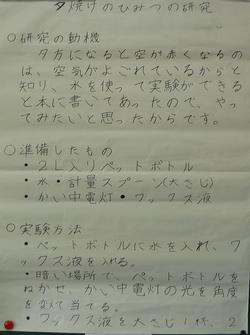 夕焼けのひみつの研究
○研究の動機
夕方になると空が赤くなるの
は、空気がよごれているからと
知り、水を使って実験ができる
と本に書いてあったので、やっ
てみたいと思ったからです。
○準備したもの
・2L入りペットボトル
・水・計量スプーン(大さじ)
・かい中電灯・ワックス液
○実験方法
・ペットボトルに水を入れ、ワ
ックス液を入れる。
・暗い場所で、ペットボトルを
ねかせ、かい中電灯の光を角度
を変えて当てる。
・ワックス液を大さじ1杯、2